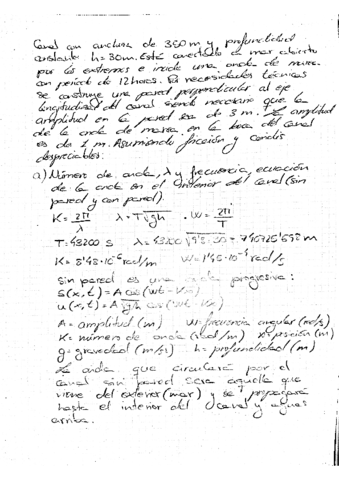 Canal con anchura de 350 m y profundidad
constante h=30m. Está conectado a mar abierto
por los extremos e incide una onda de marea
con periodo de 12 horas. Por necesidades técnicas
se construye una pared perpendicular al eje
longitudinal del canal siendo necesario que la
amplitud en la pared sea de 3 m. La amplitud
de la onda de marea en la boca del canal
es de 1 m. Asumiendo fricción y coriolis
despreciables:
a) Número de onda, λ y frecuencia, ecuación
de la onda en el interior del canal (sin
pared y con pared).
K = 2π/λ λ = T√gh · W = 2π/T
T = 43200 s λ = 43200 √9'8·30 = 740726'598 m
K = 8'48·10⁻⁶ rad/m W = 1'45·10⁻⁴ rad/s
Sin pared es una onda progresiva:
S(x,t) = A cos (wt - Kx)
u(x,t) = A √g/h cos (wt - Kx)
A = amplitud (m) W = frecuencia angular (rad/s)
K = número de onda (rad/m) x = posición (m)
g = gravedad (m/s) h = profundidad (m)
La onda que circulará por el
canal sin pared será aquella que
viene del exterior (mar) y se propagará
hasta el interior del canal y aguas
arriba.